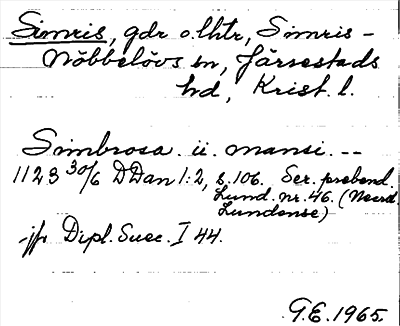 Simris, gdr o. lhtr, Simris-
Nöbbelövs sn, Järrestads
hd, Krist. l.
Simbrosa. ii. mansi. --
1123 30/6 DDan 1:2, s. 106. Ser. prebend.
Lund. nr. 46. (Necrol.
Lundense)
jfr Dipl. Suec. I 44.
G.E. 1965.